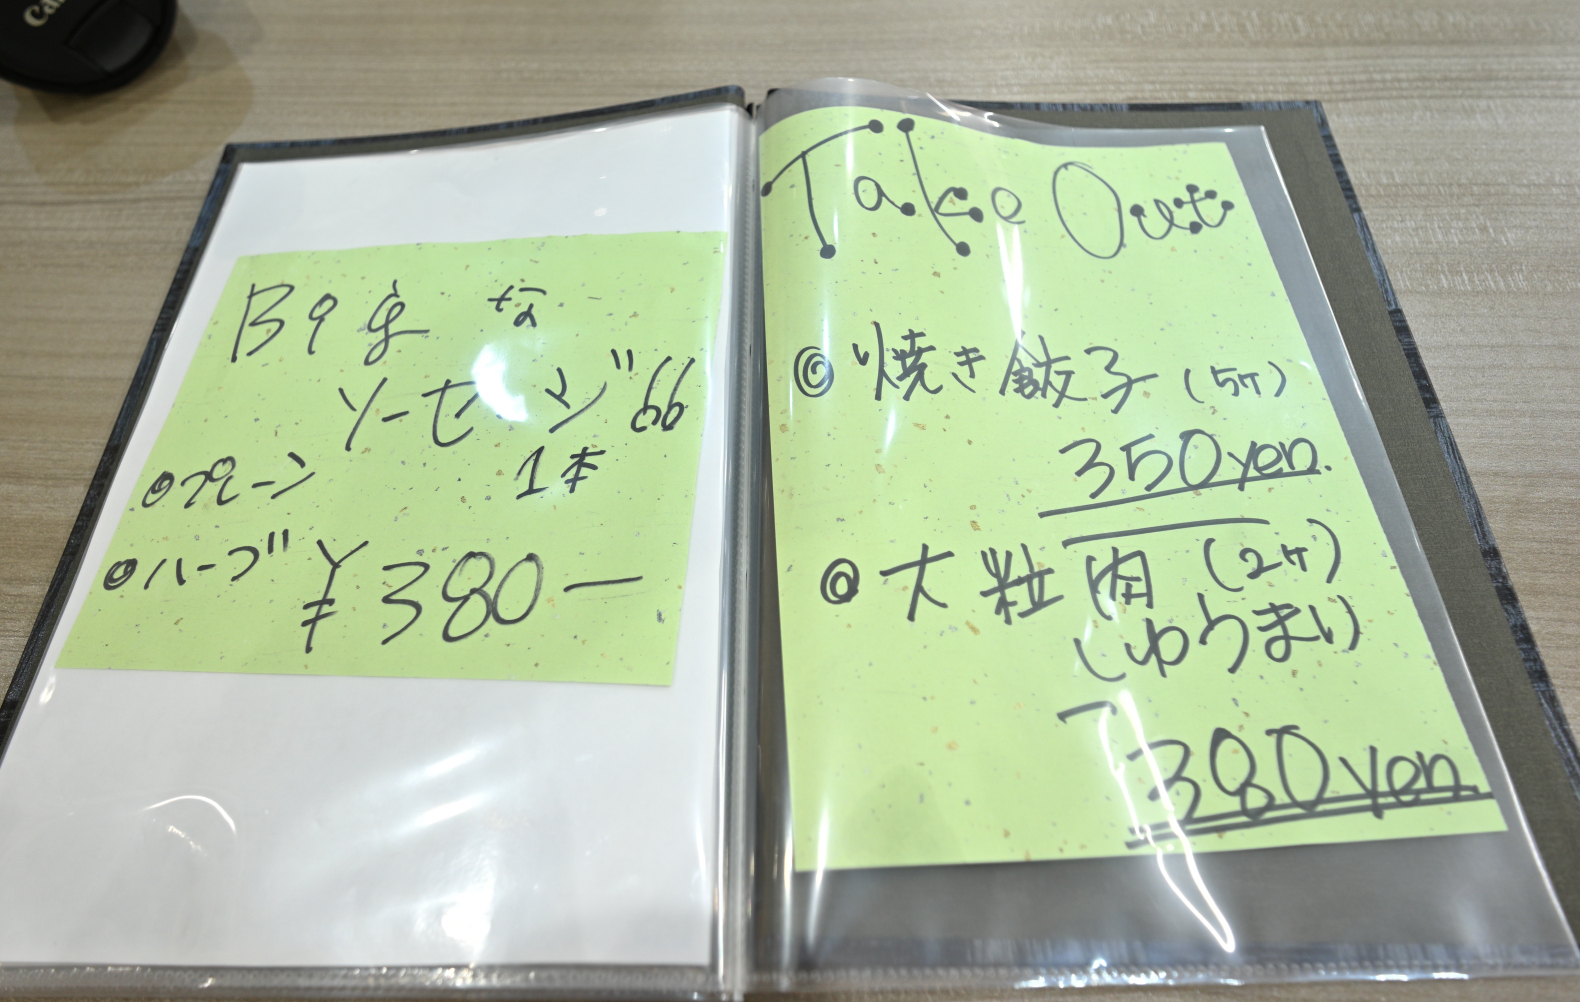 Big な
ソーセージ"66
◎プレーン 1本
◎ハーブ ¥380ー
Take Out
◎焼き餃子(5ヶ)
350yen.
◎大粒肉(2ヶ)
しゅうまい
380yen.